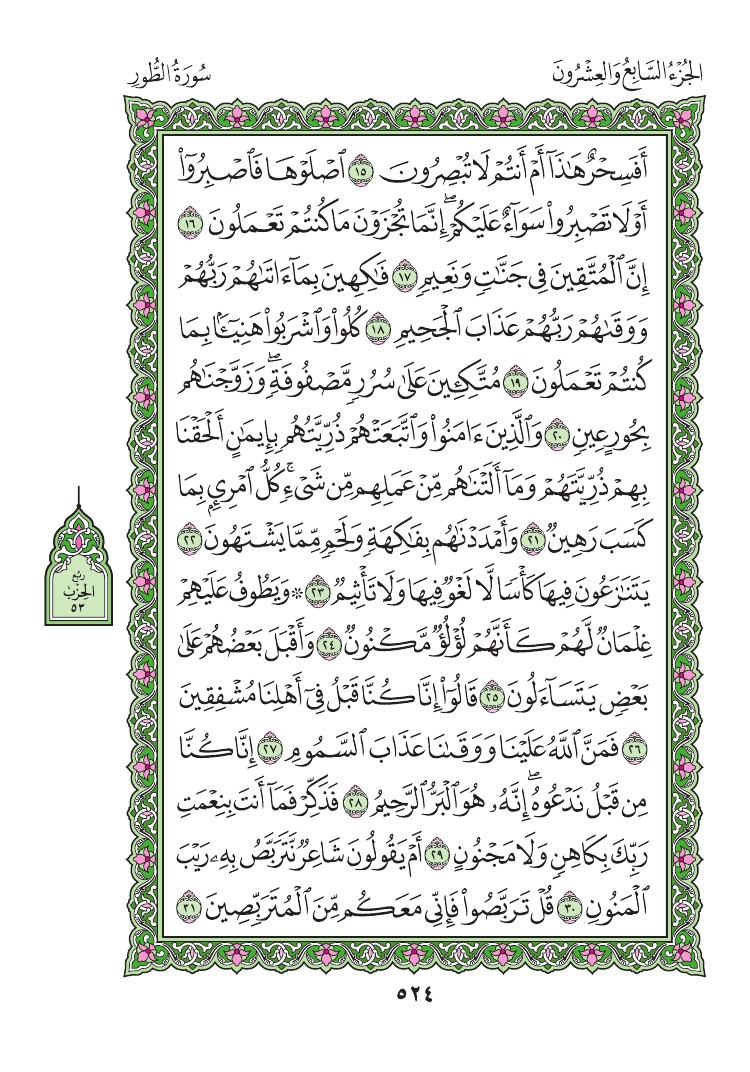 الجُزْءُ السَّابِعُ وَالعِشْرُونَ
سُورَةُ الطُّورِ
أَفَسِحْرٌ هَٰذَآ أَمْ أَنتُمْ لَا تُبْصِرُونَ ١٥ ٱصْلَوْهَا فَٱصْبِرُوٓا۟
أَوْ لَا تَصْبِرُوا۟ سَوَآءٌ عَلَيْكُمْ ۖ إِنَّمَا تُجْزَوْنَ مَا كُنتُمْ تَعْمَلُونَ ١٦
إِنَّ ٱلْمُتَّقِينَ فِى جَنَّٰتٍ وَنَعِيمٍ ١٧ فَٰكِهِينَ بِمَآ ءَاتَىٰهُمْ رَبُّهُمْ
وَوَقَىٰهُمْ رَبُّهُمْ عَذَابَ ٱلْجَحِيمِ ١٨ كُلُوا۟ وَٱشْرَبُوا۟ هَنِيٓـًٔۢا بِمَا
كُنتُمْ تَعْمَلُونَ ١٩ مُتَّكِـِٔينَ عَلَىٰ سُرُرٍ مَّصْفُوفَةٍ ۖ وَزَوَّجْنَٰهُم
بِحُورٍ عِينٍ ٢٠ وَٱلَّذِينَ ءَامَنُوا۟ وَٱتَّبَعَتْهُمْ ذُرِّيَّتُهُم بِإِيمَٰنٍ أَلْحَقْنَا
بِهِمْ ذُرِّيَّتَهُمْ وَمَآ أَلَتْنَٰهُم مِّنْ عَمَلِهِم مِّن شَىْءٍ ۚ كُلُّ ٱمْرِئٍۭ بِمَا
كَسَبَ رَهِينٌ ٢١ وَأَمْدَدْنَٰهُم بِفَٰكِهَةٍ وَلَحْمٍ مِّمَّا يَشْتَهُونَ ٢٢
يَتَنَٰزَعُونَ فِيهَا كَأْسًا لَّا لَغْوٌ فِيهَا وَلَا تَأْثِيمٌ ٢٣ ۞ وَيَطُوفُ عَلَيْهِمْ
غِلْمَانٌ لَّهُمْ كَأَنَّهُمْ لُؤْلُؤٌ مَّكْنُونٌ ٢٤ وَأَقْبَلَ بَعْضُهُمْ عَلَىٰ
بَعْضٍ يَتَسَآءَلُونَ ٢٥ قَالُوٓا۟ إِنَّا كُنَّا قَبْلُ فِىٓ أَهْلِنَا مُشْفِقِينَ
٢٦ فَمَنَّ ٱللَّهُ عَلَيْنَا وَوَقَىٰنَا عَذَابَ ٱلسَّمُومِ ٢٧ إِنَّا كُنَّا
مِن قَبْلُ نَدْعُوهُ ۖ إِنَّهُۥ هُوَ ٱلْبَرُّ ٱلرَّحِيمُ ٢٨ فَذَكِّرْ فَمَآ أَنتَ بِنِعْمَتِ
رَبِّكَ بِكَاهِنٍ وَلَا مَجْنُونٍ ٢٩ أَمْ يَقُولُونَ شَاعِرٌ نَّتَرَبَّصُ بِهِۦ رَيْبَ
ٱلْمَنُونِ ٣٠ قُلْ تَرَبَّصُوا۟ فَإِنِّى مَعَكُم مِّنَ ٱلْمُتَرَبِّصِينَ ٣١
رُبْعُ
الحِزْبِ
٥٣
٥٢٤